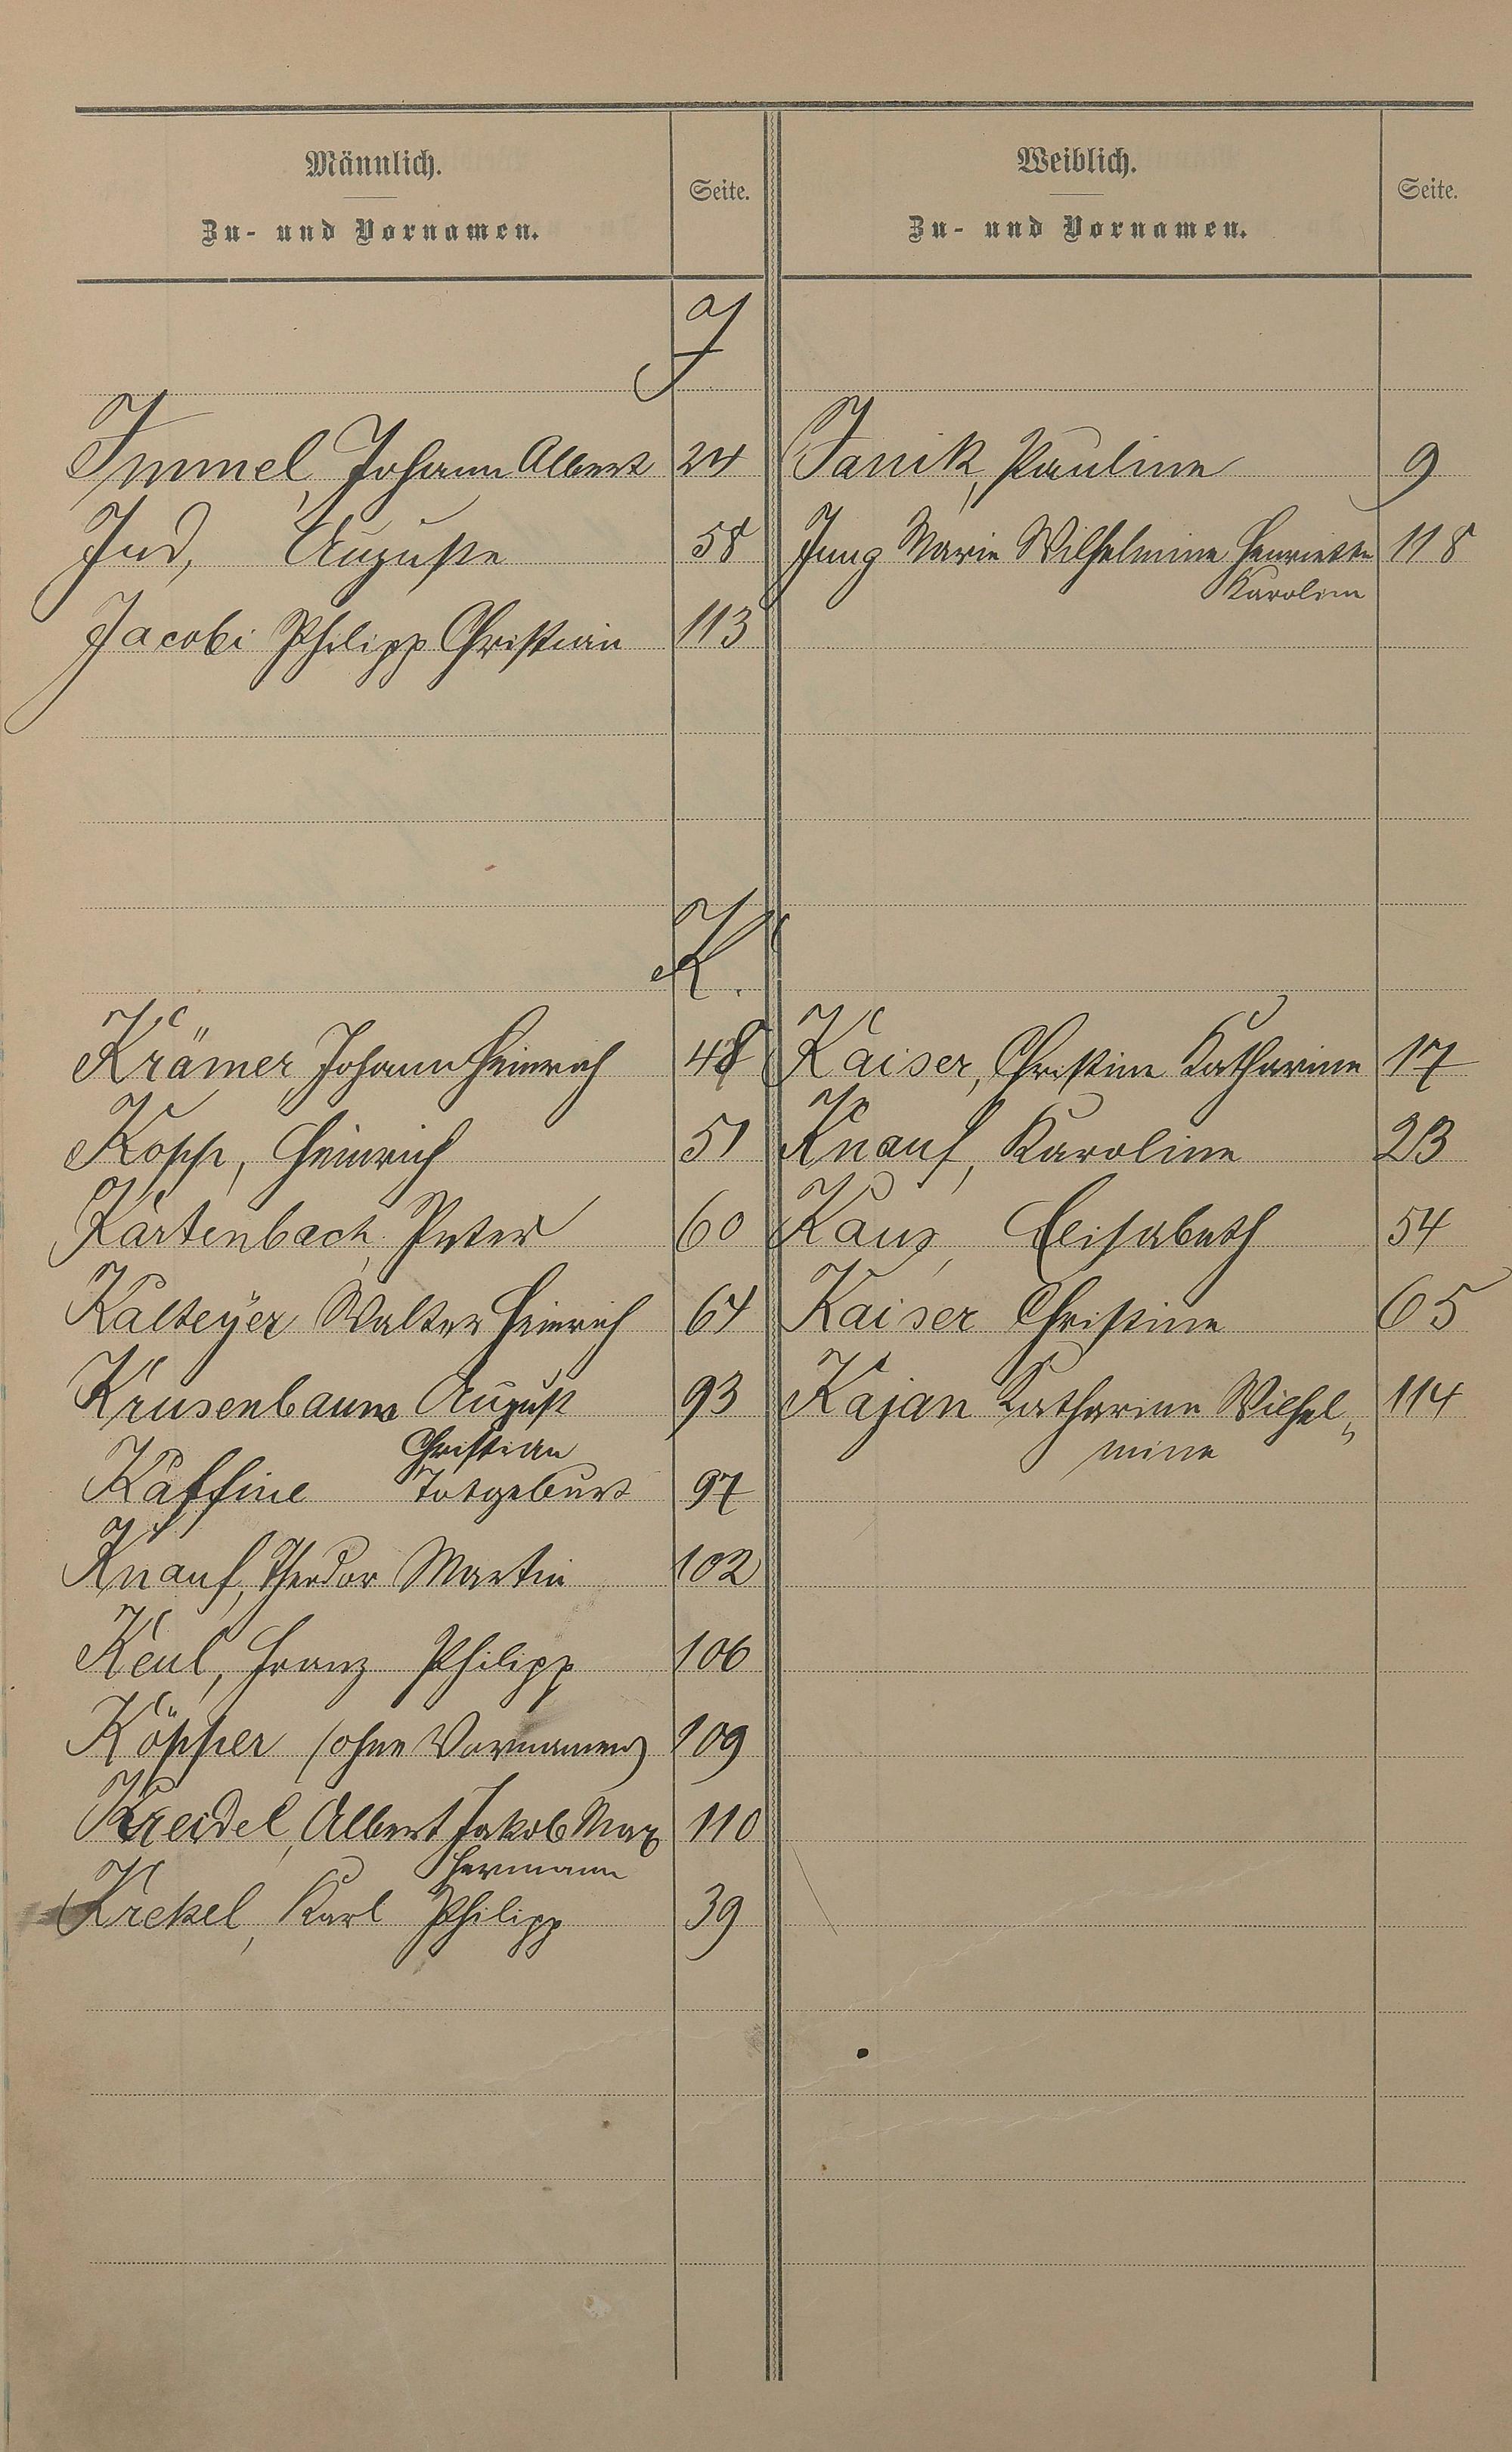 Männlich.
Zu- und Vornamen.
Seite.
Weiblich.
Zu- und Vornamen.
Seite.
J
Immel, Johann Albert 24
Janik, Pauline 9
Jud, Auguste 58
Jung Marie Wilhelmine Henriette 118
Karoline
Jacobi Philipp Christian 113
K.
Krämer Johann Heinrich 48
Kaiser, Christine Katharine 17
Kopp, Heinrich 51
Knauf, Karoline 23
Kartenbach, Peter 60
Kaus, Elisabeth 54
Kalteyer Walter Heinrich 64
Kaiser Christine 65
Krusenbaum August 93
Christian
Kajan Katharine Wilhel„ 114
mine
Kaffine Totgeburt 97
Knauf, Theodor Martin 102
Keul, Franz Philipp 106
Köpper (ohne Vornamen) 109
Kreidel, Albert Jakob Max 110
Hermann
Krekel, Karl Philipp 39